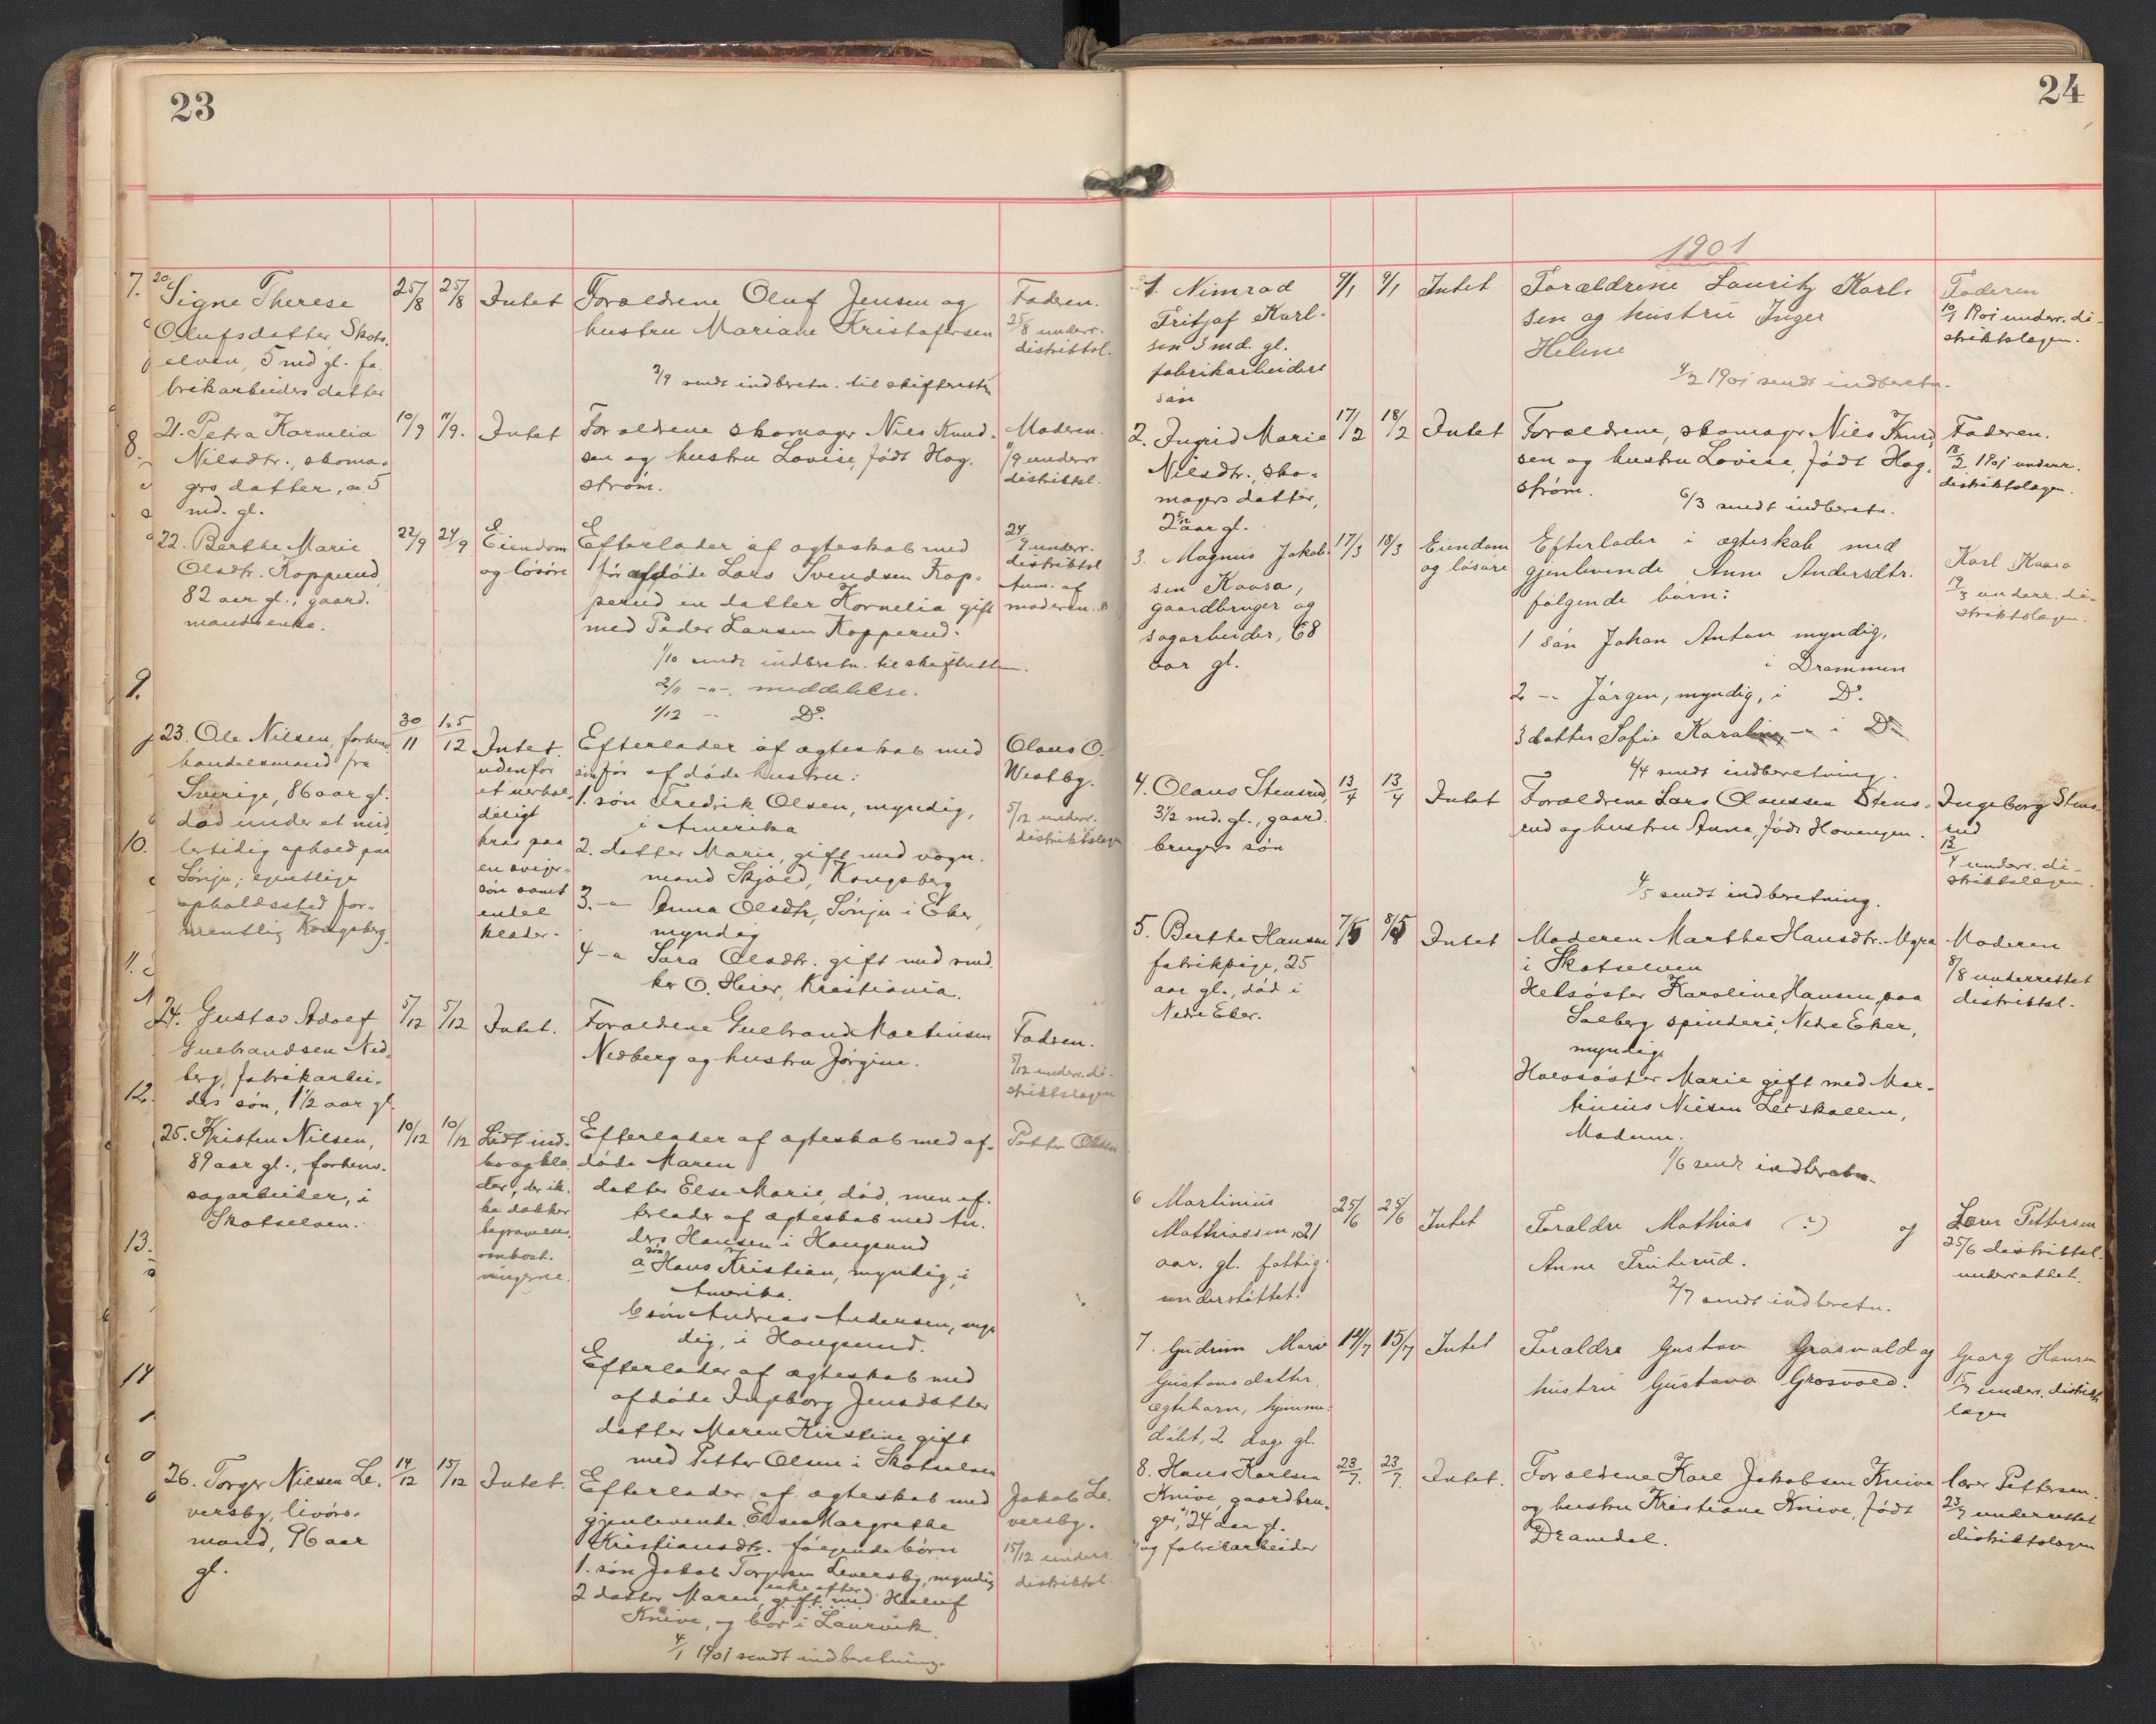 23
20. Signe Therese
Olufsdatter, Skots-
elven, 5 md gl. fa-
brikarbeiders datter
25/8
25/8
Intet
Forældrene Oluf Jensen og
hustru Mariane Kristofersen
3/9 sendt indberetn. til skifteretten
Fadren.
25/8 underr.
distriktsl.
21. Petra Kornelia
Nilsdtr., skoma-
gers datter, 5
md. gl.
10/9
11/9.
Intet
Forældrene skomager Nils Knud-
sen og hustru Lovise, født Hag-
strøm.
Moderen.
11/9 underr
distriktsl.
22. Berthe Marie
Olsdtr. Kopperud
82 aar gl., gaard-
mands enke.
22/9
24/9
Eiendom
og løsøre
Efterlader af ægteskab med
før afdøde Lars Svendsen Kop-
perud en datter Kornelia gift
med Peder Larsen Kopperud.
1/10 sendt indberetn. til skifteretten.
2/11 -"- meddelelse.
1/12 -- Do.
24/9 underr.
distriktsl
Anm. af
moderen.
23. Ole Nilsen, forhenv.
handelsmand fra
Sverige, 86 aar gl.
død under et mid-
lertidig ophold paa
Sønju; egentlige
opholdssted for-
mentlig Kongsberg.
30/11
1.5/12
Intet
udenfor
et ufor-
deligt
krav paa
en sviger-
søn samt
endel
klæder.
Efterlader af ægteskab med
sin før afdøde hustru:
1. søn Fredrik Olsen, myndig,
i Amerika
2. datter Marie, gift med vogn-
mand Skjæl, Kongsberg
3. -"- Anna Olsdtr, Sønju i Eker,
myndig
4 -"- Sara Olsdtr. gift med sned-
ker O. Heier, Kristiania.
Olaus O.
Westby.
5/12 underr.
distriktslægen
24. Gustav Adolf
Gulbrandsen Ned-
berg, fabrikarbei-
ders søn, 1½ aar gl.
5/12
5/12
Intet.
Forældrene Gulbrand Martinsen
Nedberg og hustru Jørgine.
Fadren.
5/12 underr. di-
striktslægen
25. Kristen Nilsen,
89 aar gl., forhenv.
sagarbeider, i
Skotselven.
10/12
10/12
Lidt ind-
bo og klæ-
der, der ik-
ke dækker
begravelses-
omkost-
ningerne.
Efterlader af ægteskab med af-
døde Maren
datter Else Marie, død, men ef-
terlader af ægteskab med An-
ders Hansen i Haugsund
a søn Hans Kristian, myndig, i
Amerika.
b søn Andreas Andersen, myn-
dig, i Haugsund.
Efterlader af ægteskab med
afdøde Ingeborg Jensdatter
datter Maren Kirstine gift
med Petter Olsen i Skotselven
Petter Olsen
26. Torger Nilsen Le-
versby, livørs-
mand, 96 aar
gl.
14/12
15/12
Intet.
Efterlader af ægteskab med
gjenlevende Else Margrethe
Kristiansdtr. følgende børn
1. søn Jakob Torgersen Leversby, myndig
enke efter
2 datter Maren, gift med Herluf
Knive, og bor i Laurvik.
4/1 1901 sendt indberetning.
Jakob Le-
versby.
15/12 underr.
distriktsl.
7.
8.
9.
10.
11.
12.
13.
14
24
1901
1. Nimrod
Fritjof Karl-
sen 3 md. gl.
fabrikarbeiders
søn
9/1
9/1
Intet
Forældrene Lauritz Karl-
sen og hustru Inger
Helme
4/2 1901 sendt indberetn.
Faderen
10/1 1901 underr. di-
striktslægen.
2. Ingrid Marie
Nilsdtr., sko-
magers datter,
2 5/12 aar gl.
17/2
18/2
Intet
Forældrene, skomager Nils Knud-
sen og hustru Lovise, født Hag-
strøm.
6/3 sendt indberetn.
Faderen.
18/2 1901 underr.
distriktslægen.
3. Magnus Jakob-
sen Kaasa,
gaardbruger og
sagarbeider, 68
aar gl.
17/3
18/3
Eiendom
og løsøre
Efterlader i ægteskab med
gjenlevende Anne Andersdtr.
følgende børn:
1 søn Johan Anton myndig,
i Drammen
2 -"- Jørgen, myndig, i Do.
3 datter Sofie Karoline -"- i Do
4/4 sendt indberetning.
Karl Kaasa
19/3 underr. di-
striktslægen.
4. Olaus Stensrud,
3½ md. gl., gaard-
brugers søn
13/4
13/4
Intet
Forældrene Lars Olaussen Stens-
rud og hustru Anna, født Hovengen.
4/5 sendt indberetning.
Ingeborg Stens-
rud
13/4 underr. di-
striktslægen.
5. Berthe Hansen
fabrikpige, 25
aar gl., død i
Nedre Eker.
7/5
8/5
Intet
Moderen Marthe Hansdtr. Myra
i Skotselven
Helsøster Karoline Hansen, paa
Solberg spinderi, Nedre Eker,
myndig.
Halvsøster Marie gift med Mar-
tinius Nilsen Letskallen,
Modum.
1/6 sendt indberetn.
Moderen
8/8 underrettet
distriktsl.
6 Martinius
Mathiassen, 21
aar. gl. fattig-
understøttet.
25/6
25/6
Intet
Forældre Mathias (?) og
Anne Fruterud.
2/7 sendt indberetn.
Lærer Pettersen
25/6 distriktsl.
underrettet.
7. Gudrun Marie
Gustavsdatter,
ægtebarn, hjemme-
døbt, 2 dage gl.
14/7
15/7
Intet
Forældre Gustav Grosvold og
hustru Gustava Grosvold.
Georg Hansen
15/7 underr. distrikts
lægen
8. Hans Karlsen
Knive, gaardbru-
ger, 24 aar gl.
og fabrikarbeider
23/7.
23/7.
Intet.
Forældrene Karl Jakobsen Knive
og hustru Kristiane Knive, født
Dramdal.
lærer Pettersen.
23/7 underrettet
distriktslægen